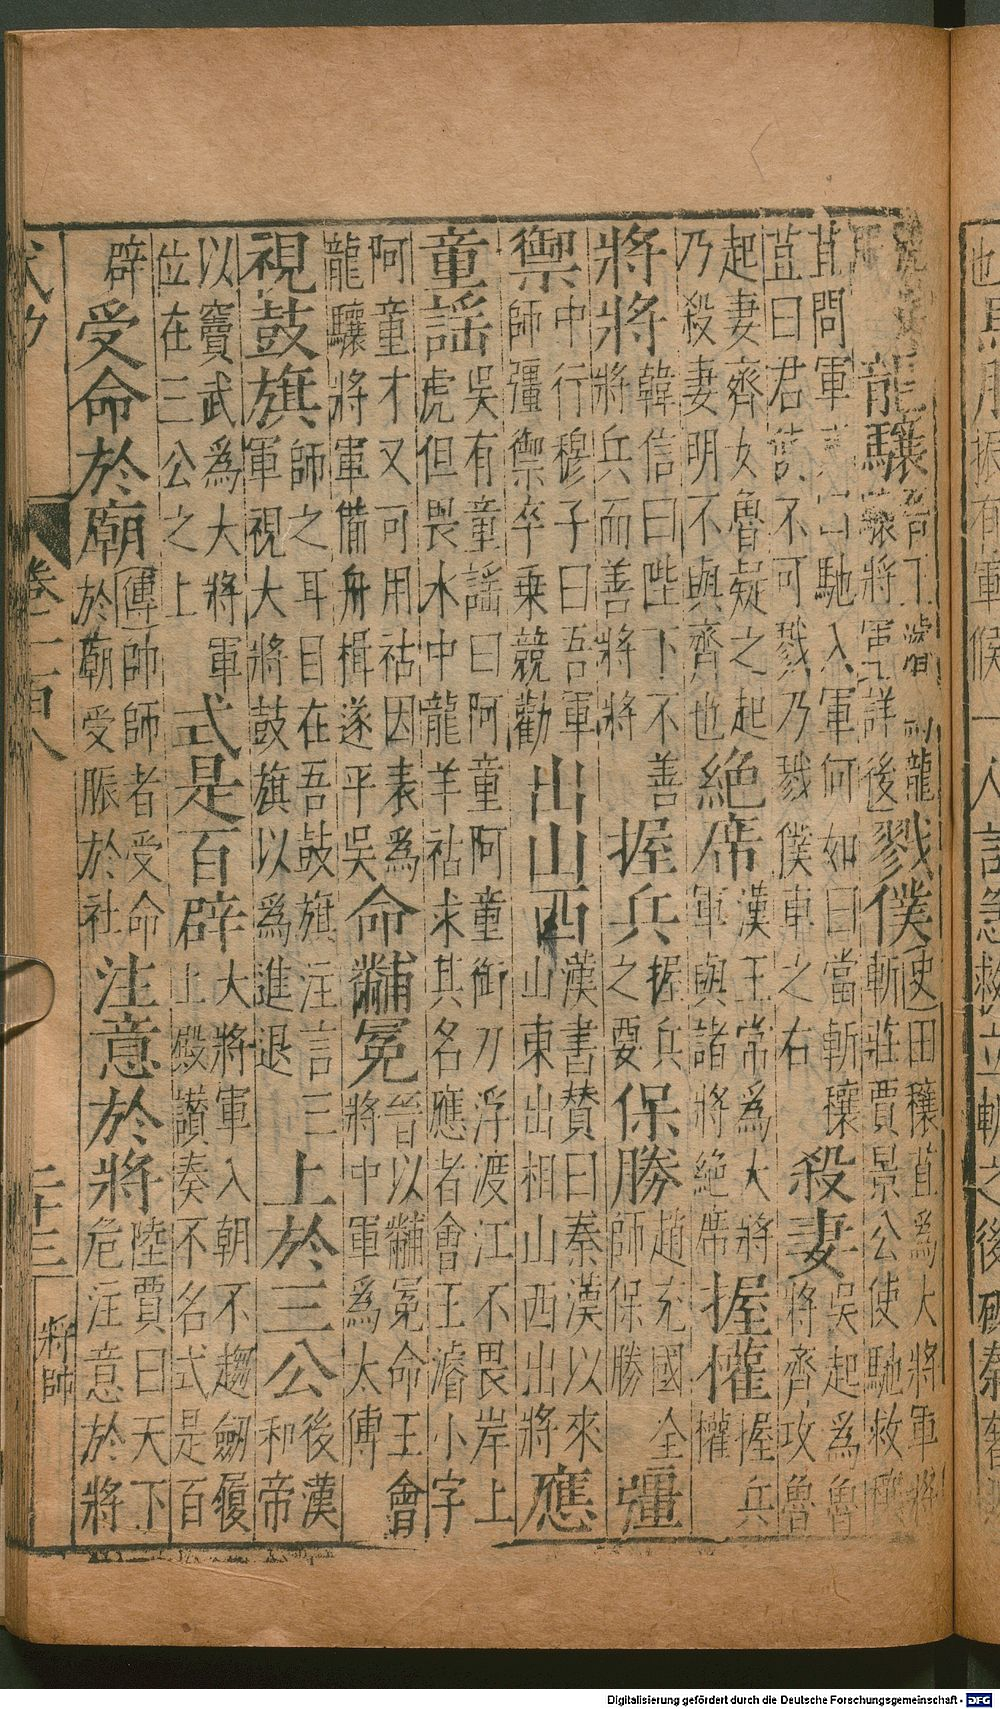 龍驤
驤將軍詳後
戮僕
史田穰苴為大將軍將
斬莊賈景公使馳救
苴問軍馳入軍何如曰當斬穰
苴曰君不可戮乃戮僕車之右
殺妻
吳起為魯
將齊攻魯
起妻齊女魯疑之起
乃殺妻明不與齊也
絕席
漢王常為大將
軍與諸將絕席
握權
握兵
權
將將
韓信曰陛下不善
將兵而善將將
握兵
握兵
之要
保勝
趙充國全
師保勝
彊
禦
中行穆子曰吾軍
師彊禦卒乗競勸
出山西
漢書賛曰秦漢以來
山東出相山西出將
應
童謡
吳有童謡曰阿童阿童銜刀浮渡江不畏岸上
虎但畏水中龍羊祜求其名應者會王濬小字
阿童才又可用祜因表為
龍驤將軍備舟楫遂平吳
命黼冕
晉以黼冕命王會
將中軍為太傅
視鼓旗
師之耳目在吾鼓旗注言三
軍視大將鼓旗以為進退
上於三公
後漢
和帝
以竇武為大將軍
位在三公之上
式是百辟
大將軍入朝不趨劔履
上殿讃奏不名式是百
辟
受命於廟
傳師師者受命
於廟受脤於社
注意於將
陸賈曰天下
危注意於將
武功
卷一百八
二十三
將師
Digitalisierung gefördert durch die Deutsche Forschungsgemeinschaft - DFG